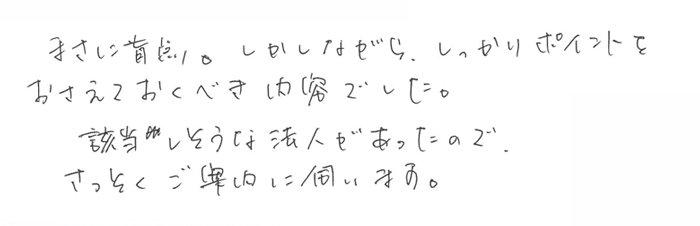 まさに盲点!。しかしながら、しっかりポイントを
おさえておくべき内容でした。
該当しそうな法人があったので、
さっそくご案内に伺います。